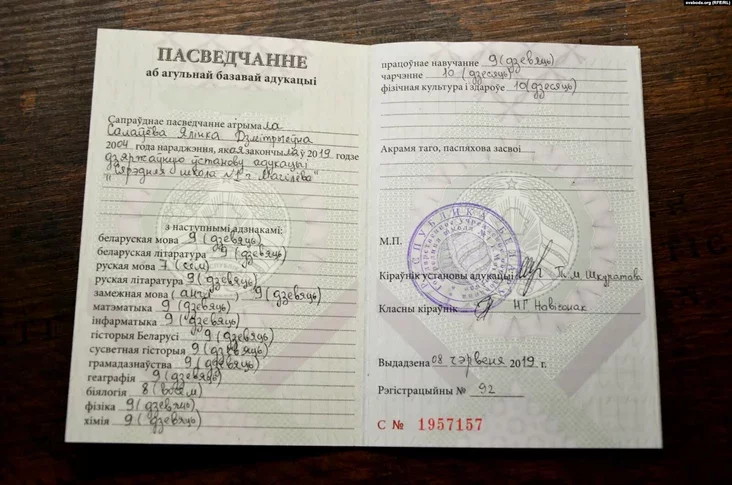 svaboda.org (RFE/RL)
ПАСВЕДЧАННЕ
аб агульнай базавай адукацыі
Сапраўднае пасведчанне атрымала
Салаўёва Яліна Дзмітрыеўна
2004 года нараджэння, якая закончыла ў 2019 годзе
дзяржаўную ўстанову адукацыі
"Сярэдняя школа №1 г. Магілёва"
з наступнымі адзнакамі:
беларуская мова 9 (дзевяць)
беларуская літаратура 9 (дзевяць)
руская мова 7 (сем)
руская літаратура 9 (дзевяць)
замежная мова (англ.) 9 (дзевяць)
матэматыка 9 (дзевяць)
інфарматыка 9 (дзевяць)
гісторыя Беларусі 9 (дзевяць)
сусветная гісторыя 9 (дзевяць)
грамадазнаўства 9 (дзевяць)
геаграфія 9 (дзевяць)
біялогія 8 (восем)
фізіка 9 (дзевяць)
хімія 9 (дзевяць)
працоўнае навучанне 9 (дзевяць)
чарчэнне 10 (дзесяць)
фізічная культура і здароўе 10 (дзесяць)
Акрамя таго, паспяхова засвоі
М.П.
Кіраўнік установы адукацыі М. Шкуратова
Класны кіраўнік
Выдадзена 08 чэрвеня 2019 г.
Рэгістрацыйны № 92
С № 1957157